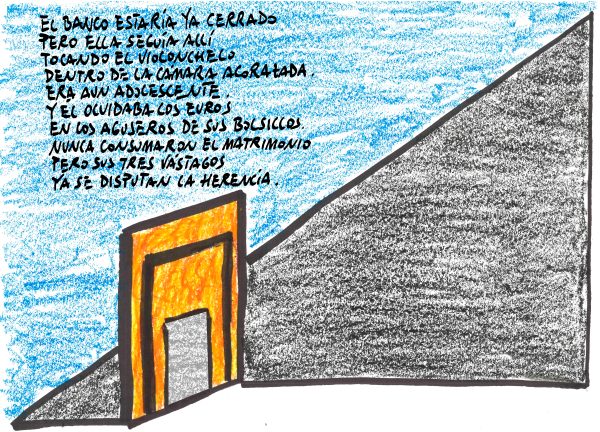 EL BANCO ESTARÍA YA CERRADO
PERO ELLA SEGUÍA ALLÍ
TOCANDO EL VIOLONCHELO
DENTRO DE LA CAMARA ACORAZADA.
ERA AUN ADOLESCENTE.
Y ÉL OLVIDABA LOS EUROS
EN LOS AGUJEROS DE SUS BOLSILLOS.
NUNCA CONSUMARON EL MATRIMONIO
PERO SUS TRES VÁSTAGOS
YA SE DISPUTAN LA HERENCIA.